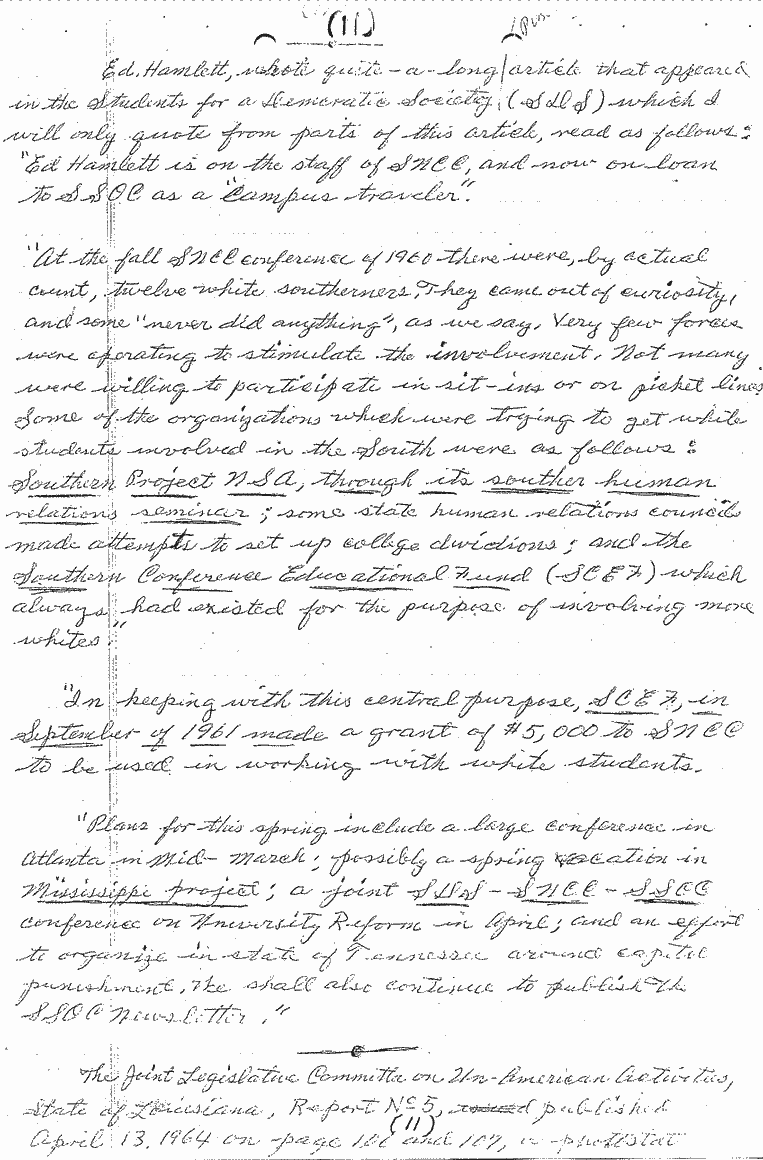 (11)
Ed. Hamlett, whote quite-a-long article that appeared
in the Students for a Democratic Society, (SDS) which I
will only quote from parts of this article, read as follows:
"Ed Hamlett is on the staff of SNCC, and now on loan
to SSOC as a "campus traveler".
"At the fall SNCC conference of 1960 there were, by actual
count, twelve white southerners. They came out of curiosity,
and some "never did anything", as we say. Very few forces
were operating to stimulate the involvement. Not many
were willing to participate in sit-ins or on picket lines
Some of the organizations which were trying to get white
students involved in the South were as follows:
Southern Project NSA, through its souther human
relations seminar; some state human relations councils
made attempts to set up college dividions; and the
Southern Conference Educational Fund (SCEF) which
always had existed for the purpose of involving more
whites."
"In keeping with this central purpose, SCEF, in
September of 1961 made a grant of $5,000 to SNCC
to be used in working with white students.
"Plans for this spring include a large conference in
Atlanta in Mid-March; possibly a spring vacation in
Mississippi project; a joint SDS-SNCC-SSCC
conference on University Reform in April; and an effort
to organize in state of Tennessee around capitol
punishment. We shall also continue to publish the
SSOC Newsletter."
The Joint Legislative Committe on Un-American Activities,
State of Louisiana, Report No 5, published
April 13, 1964 on page 106 and 107, a photostat
(11)